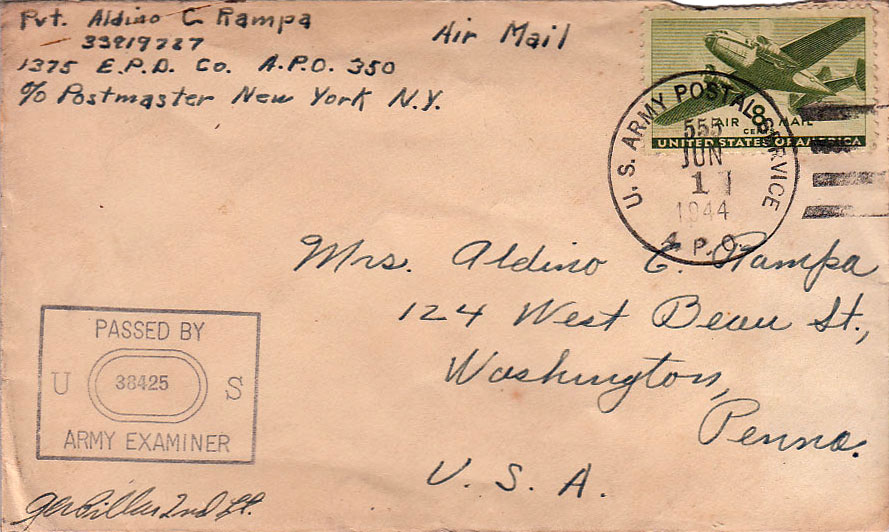 Pvt. Aldino C Rampa
33919727
1375 E.P.D. Co. A.P.O. 350
c/o Postmaster New York N.Y.
Air Mail
8
AIR MAIL
CENTS
UNITED STATES OF AMERICA
U. S. ARMY POSTAL SERVICE
555
JUN
1
1944
A. P. O.
Mrs. Aldino C. Rampa
124 West Beau St.,
Washington,
Penna.
U. S. A.
PASSED BY
U 38425 S
ARMY EXAMINER
2nd Lt.